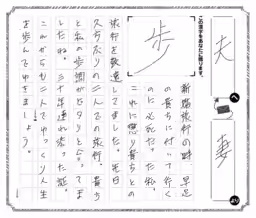 夫
へ
妻
より
この漢字をあなたに贈ります。
歩
新婚旅行の時、早足
の貴方に付いて行く
のに必死だった私。
これに懲り貴方との
旅行を敬遠してました。先日
久ぢぶりの二人での旅行。貴方
と私の歩調がピタリと合ってま
したね。三十年連れ添った証。
これからも二人でゆっくり人生
を歩んでゆきましょう。